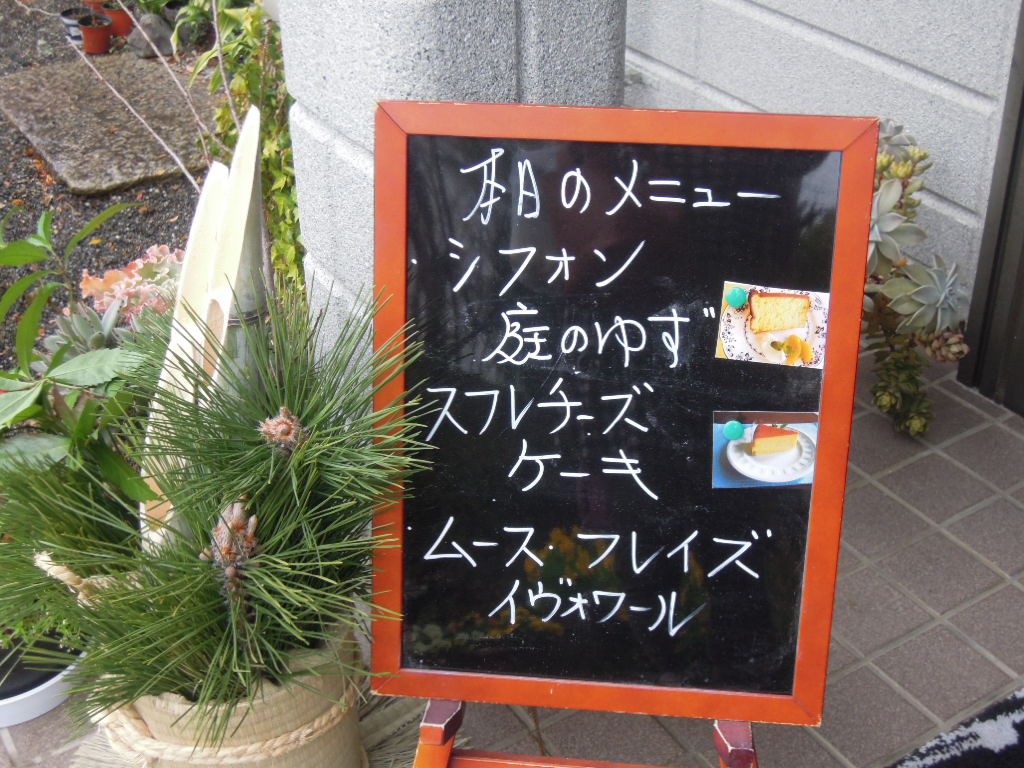 本日のメニュー
・シフォン
庭のゆず
スフレチーズ
ケーキ
ムース・フレイズ
イヴォワール